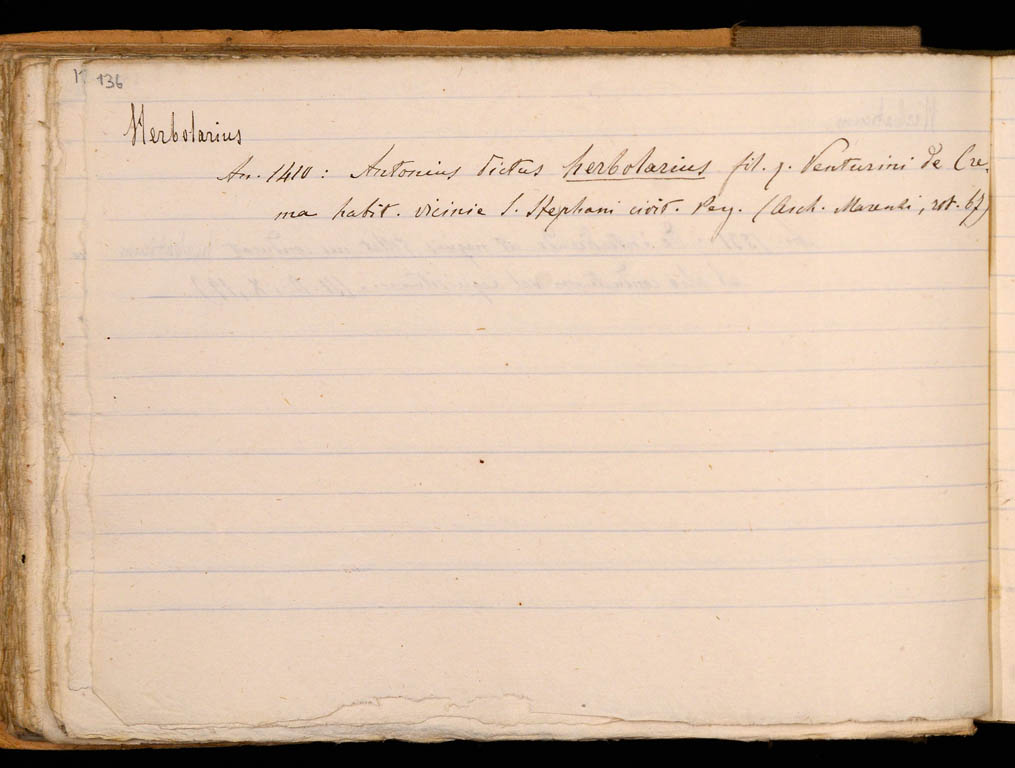 136
Herbolarius
An. 1410 : Antonius dictus herbolarius fil. q. Venturini de Cre-
ma habit. vicinie S. Stephani civit. Perg. (Arch. Marenzi, rot. 67)